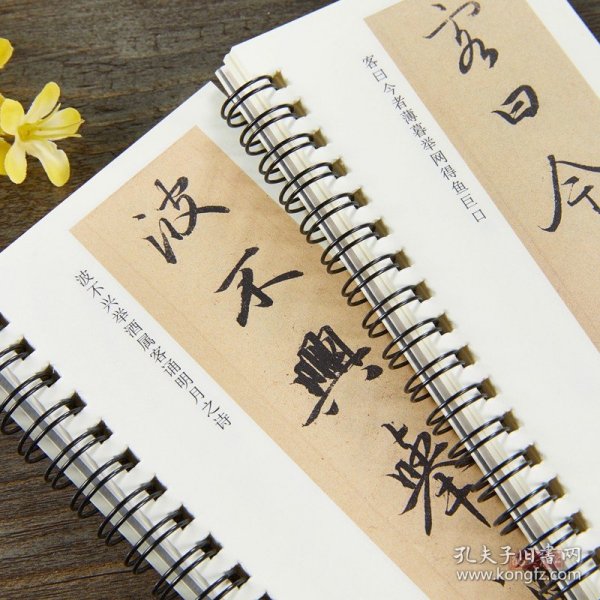 波不兴举酒属客诵明月之诗
波不興舉
客曰今者薄暮举网得鱼巨口
客曰今
孔夫子旧书网
www.kongfz.com